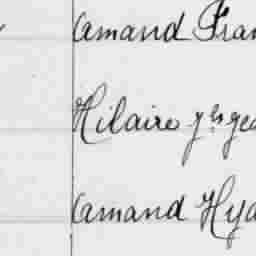 Amand Fran
Hilaire
Amand Hya